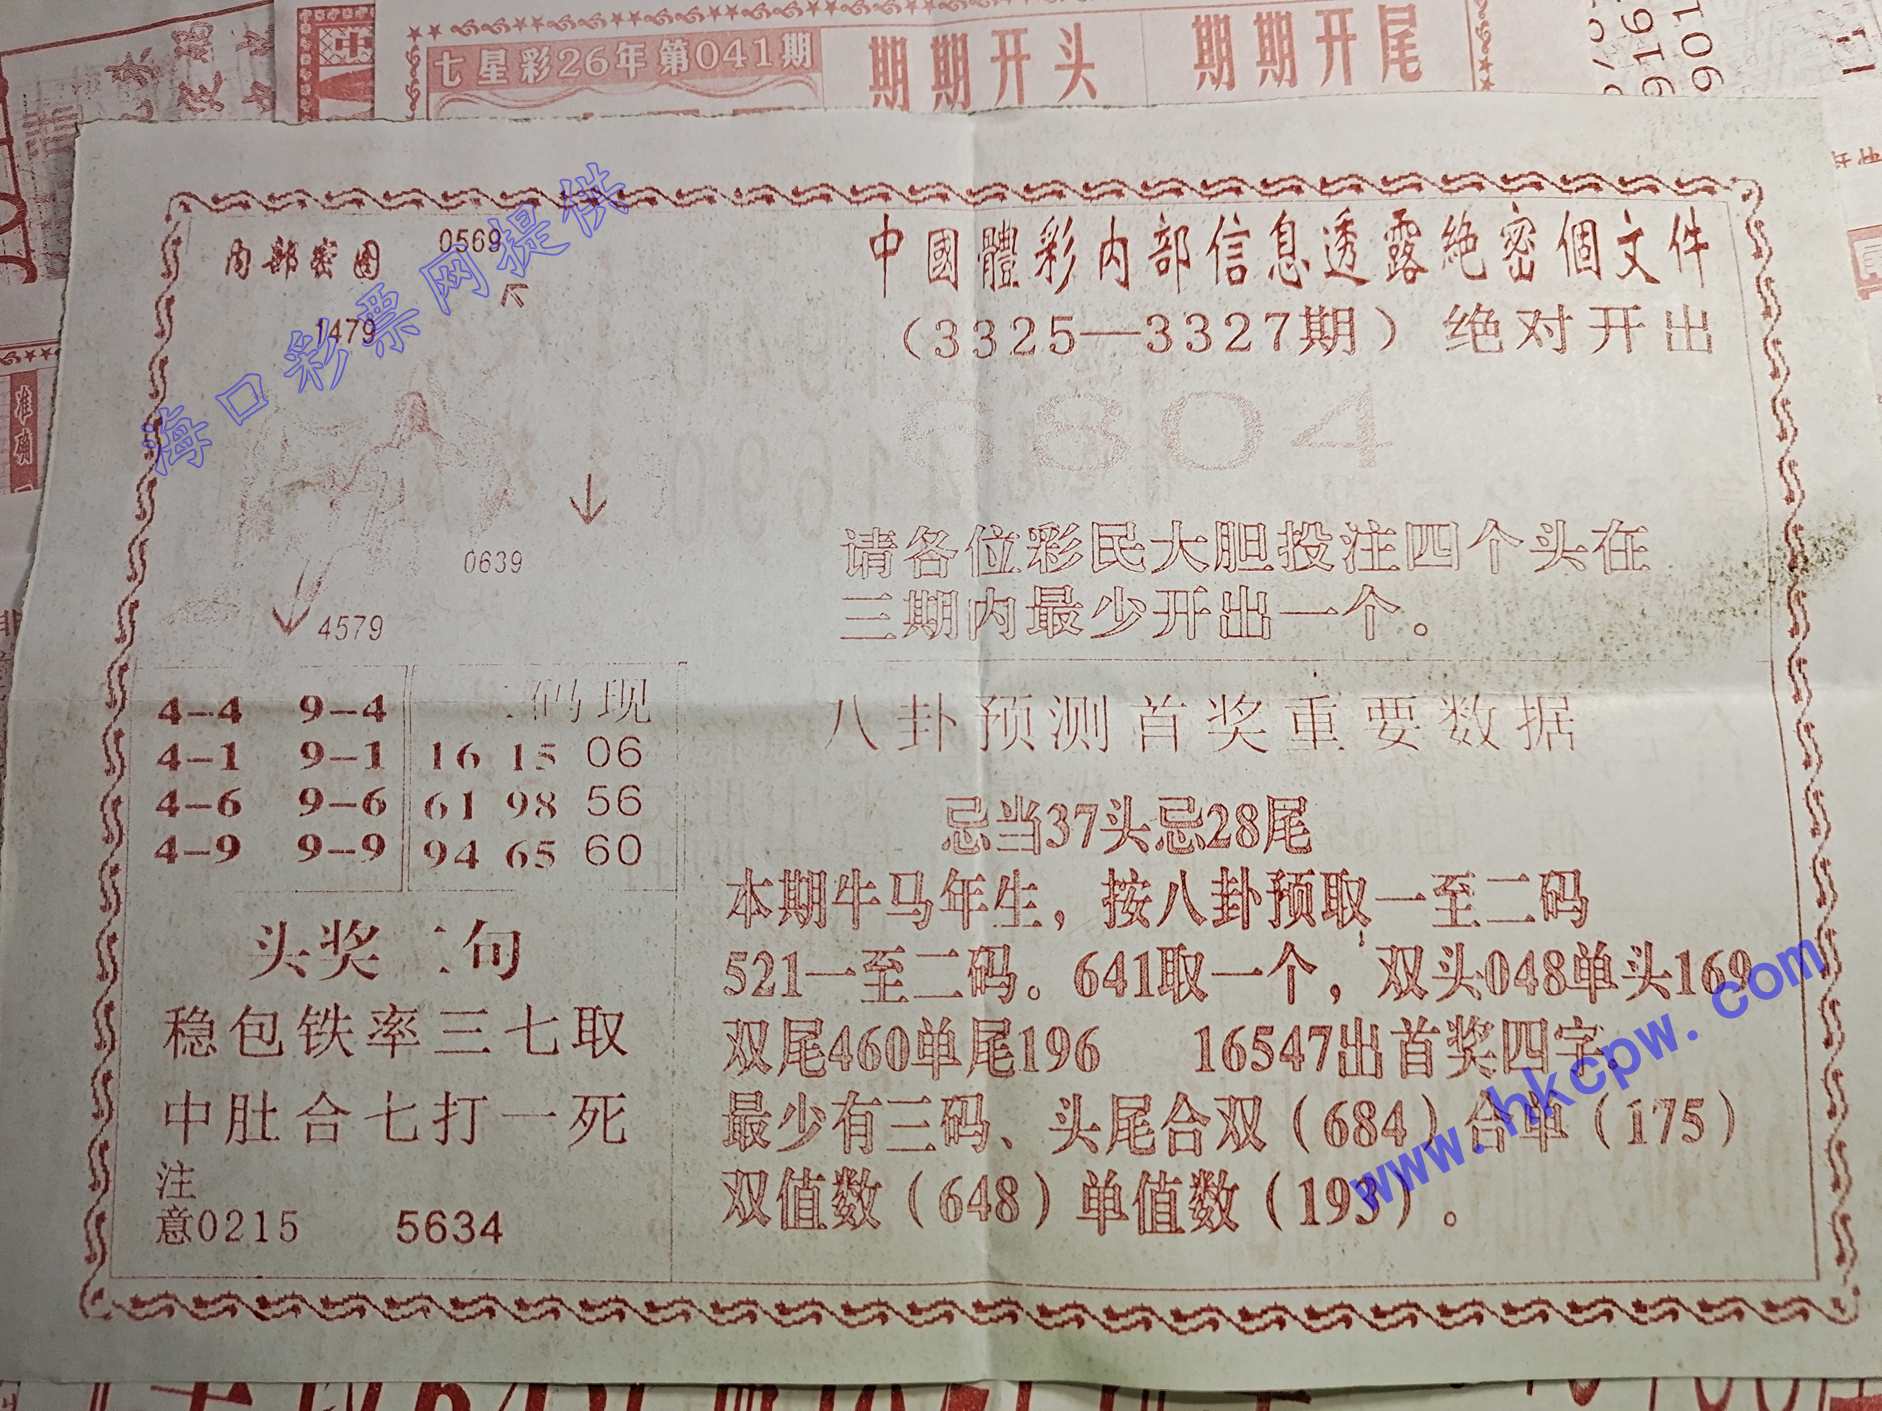 七星彩26年第041期
期期开头
期期开尾
内部密图
0569
1479
0639
4579
中國體彩内部信息透露绝密個文件
（3325—3327期）绝对开出
6804
请各位彩民大胆投注四个头在
三期内最少开出一个。
4-4 9-4
4-1 9-1
4-6 9-6
4-9 9-9
二码现
16 15 06
61 98 56
94 65 60
头奖二句
稳包铁率三七取
中肚合七打一死
注
意0215 5634
八卦预测首奖重要数据
忌当37头忌28尾
本期牛马年生，按八卦预取一至二码
521一至二码。641取一个，双头048单头169
双尾460单尾196 16547出首奖四字。
最少有三码、头尾合双（684）合单（175）
双值数（648）单值数（193）。
海口彩票网提供
www.hkcpw.com